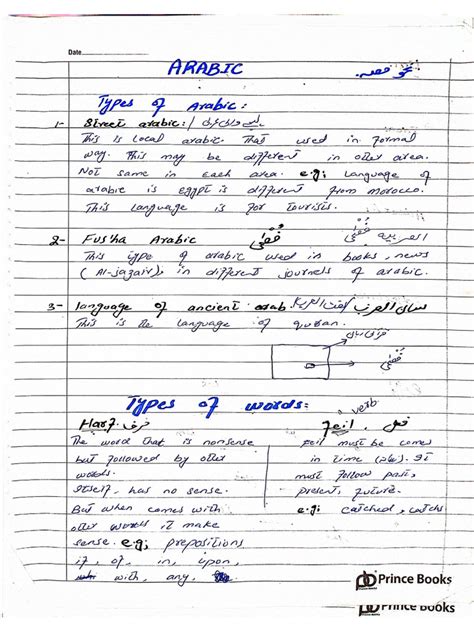 Date
ARABIC
Types of Arabic:
1- Street arabic:/
This is local arabic that used in formal
way. This may be different in other area.
Not same in each area. e.g; language of
arabic is egypt is different from morocco.
This language is for tourists.
2- Fus'ha Arabic فُصْحٰى العربية
This type of arabic used in books, news
(Al-jazair), in different journels of arabic.
3- language of ancient arab. لسان العرب
This is the language of quran.
قرآنی زبان
فُصْحٰى
Types of words:
Harf. حرف
The word that is nonsense
but followed by other
words.
Itself, has no sense.
But when comes with
other words it make
sense. e.g; prepositions
if, of, in, upon,
with, any
verb
Feil فعل
Feil must be comes
in time. It
must follow past,
present, future.
e.g; catched, catchs
Prince Books
Prince Books